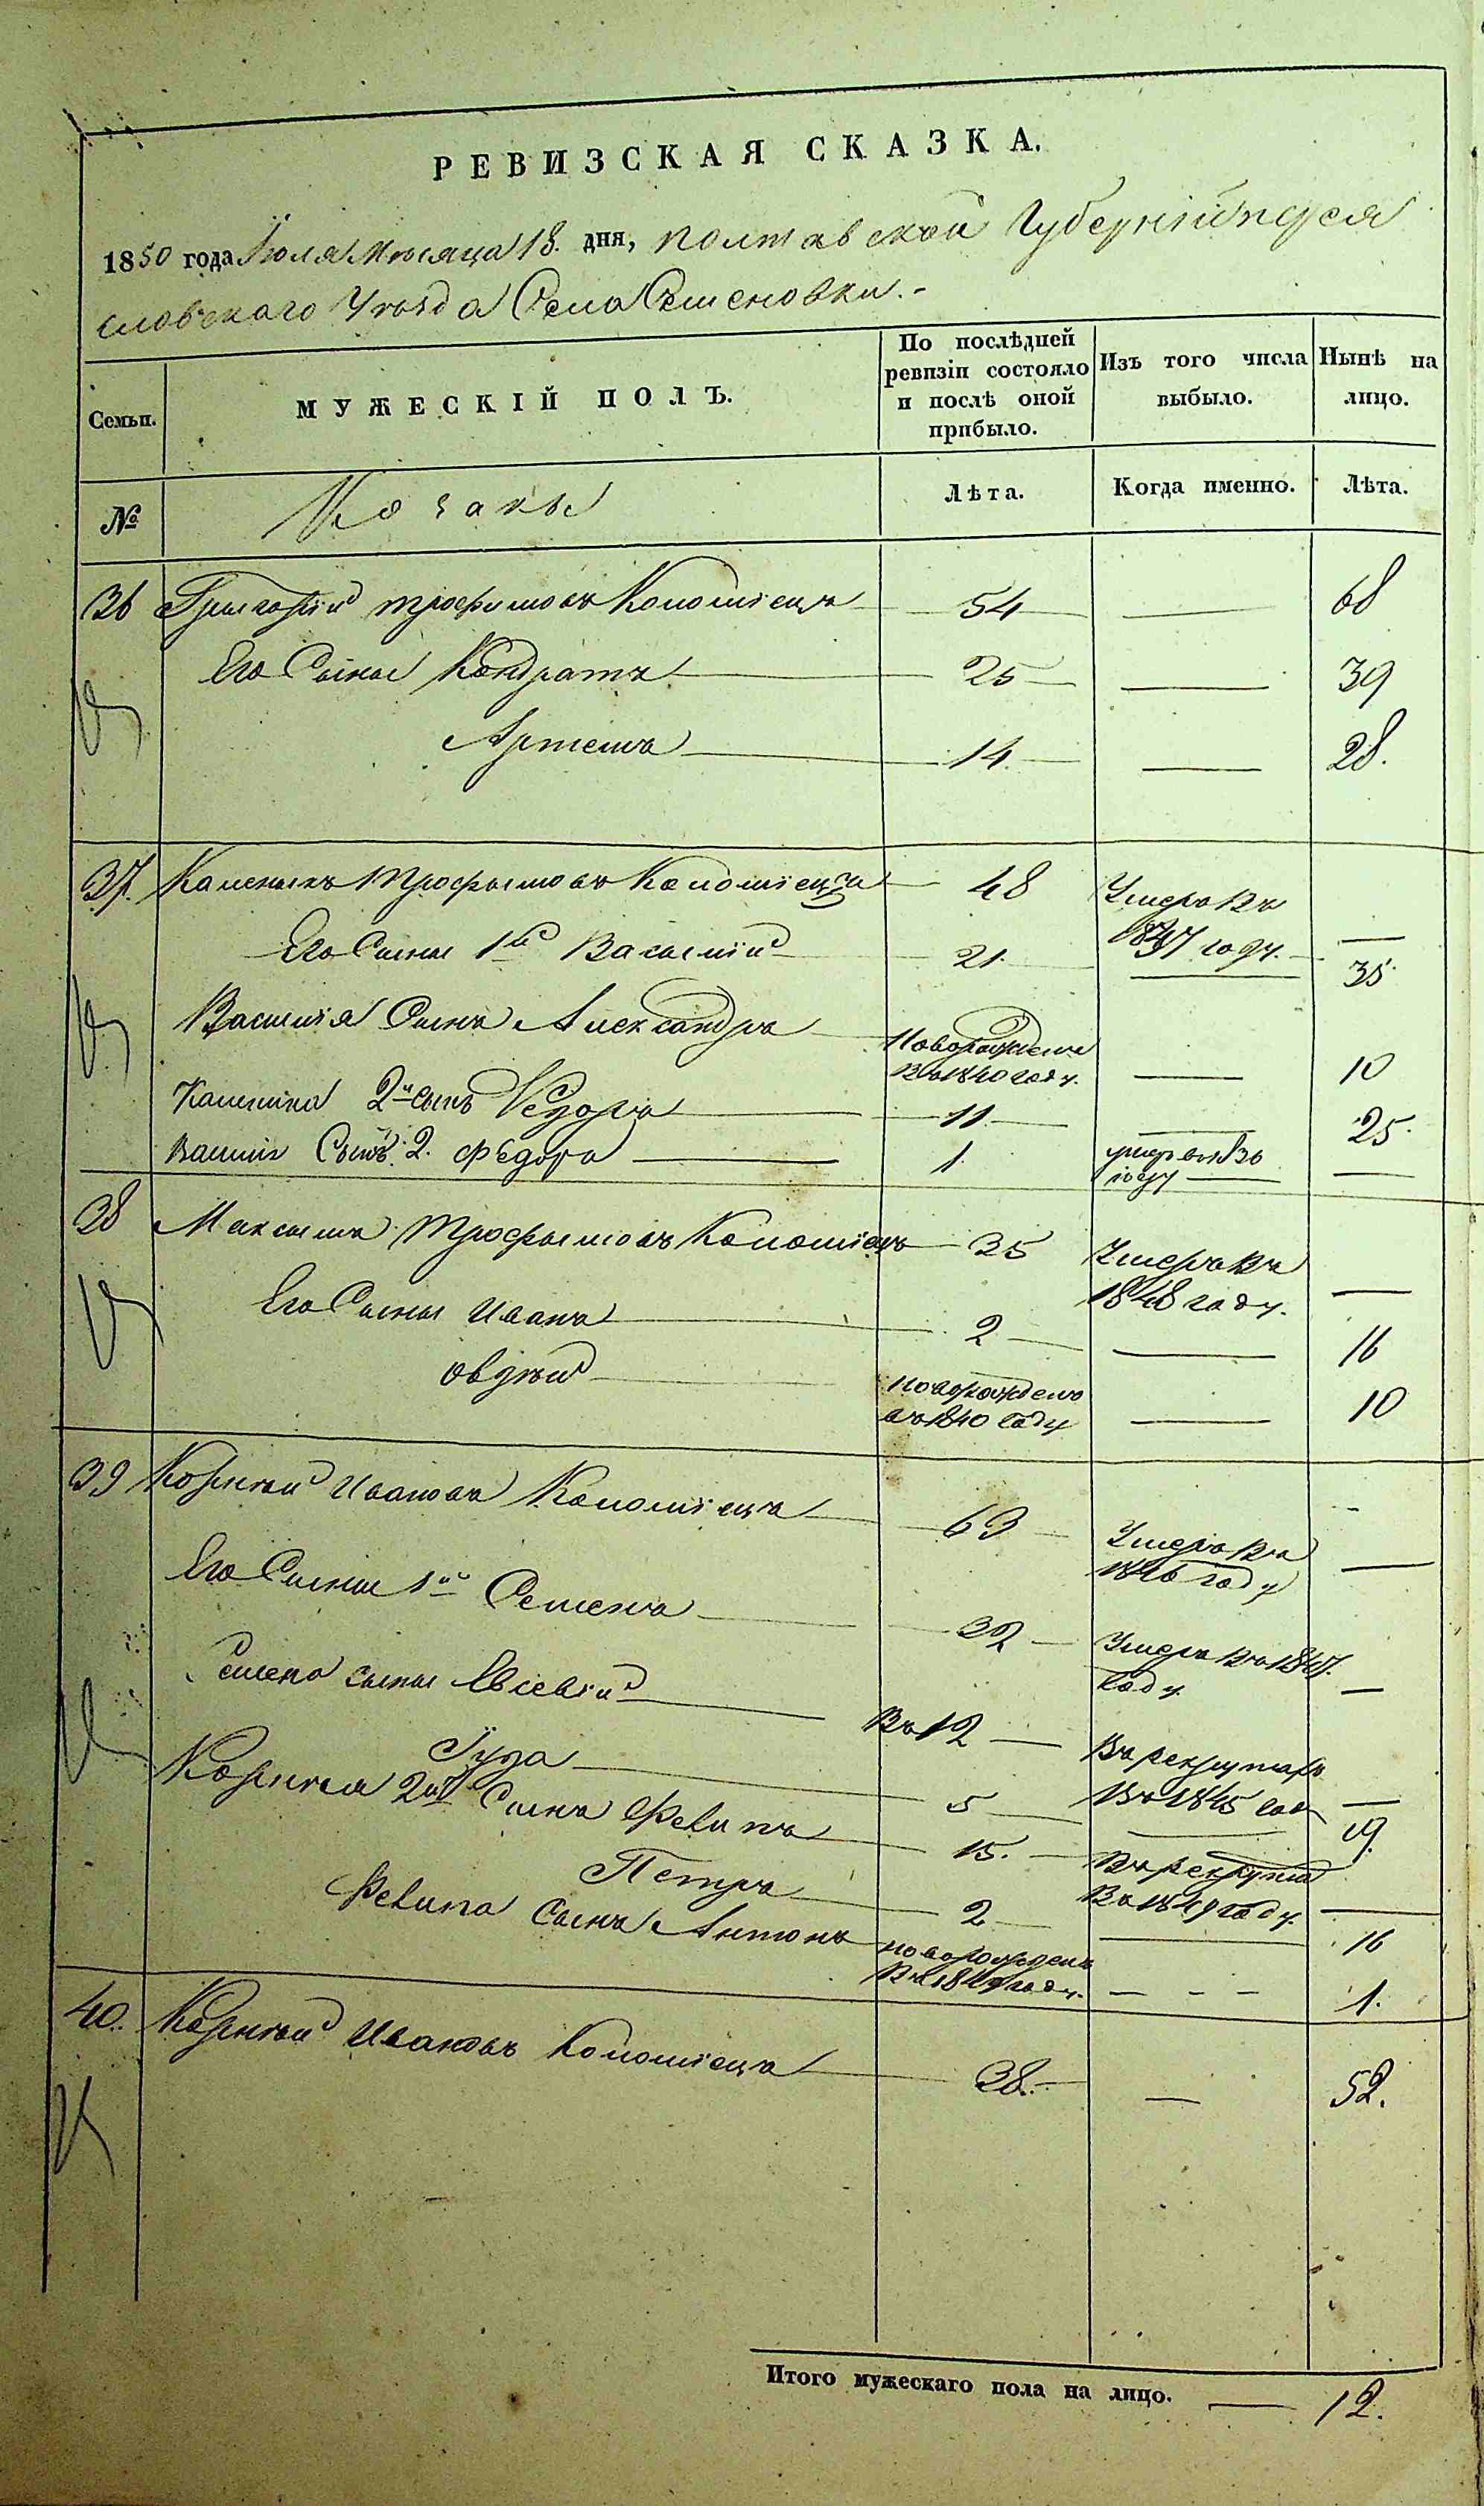 РЕВИЗСКАЯ СКАЗКА.
1850 года Іюля Мѣсяца 18. дня, Полтавской Губерніи
словскаго Уѣзда Села Семеновки.-
Семьи. МУЖЕСКІЙ ПОЛЪ. По послѣдней ревизіи состояло и послѣ оной прибыло. Изъ того числа выбыло. Нынѣ на лицо.
№ Козаки Лѣта. Когда именно. Лѣта.
36 Григорій Трофимовъ Коломіецъ 54 — 68
Его Сыны Кондратъ 25 — 39
Артемъ 14. — 28.
37. Каленикъ Трофимовъ Коломіецъ 48 Умеръ въ 1847 году. —
Его Сыны 1й Василій 21. — 35.
Василія Сынъ Александръ Новорожденъ Въ 1840 году. — 10
Каленика 2й сынъ Федоръ 11. — 25.
Сынъ 2. Федоръ 1. умеръ году —
38 Максимъ Трофимовъ Коломіецъ 35 Умеръ въ 1848 году. —
Его Сыны Иванъ 2 — 16
Овдѣй новорожденъ въ 1840 году — 10
39 Корнѣй Ивановъ Коломіецъ 63 Умеръ въ 1846 году —
Его Сыны 1й Семенъ 32 Умеръ въ 1847. году. —
Семена сыны Евсевій Въ 12 Въ рекруты Въ 1845 году —
Іуда 5 — 19.
Корнѣя 2й Сынъ Филипъ 15. Въ рекруты Въ 1849 году. —
Петръ 2 — 16
Филипа Сынъ Антонъ новорожденъ Въ 1849 году. - - - 1.
40. Корнѣй Ивановъ Коломіецъ 38. — 52.
Итого мужескаго пола на лицо. — 12.